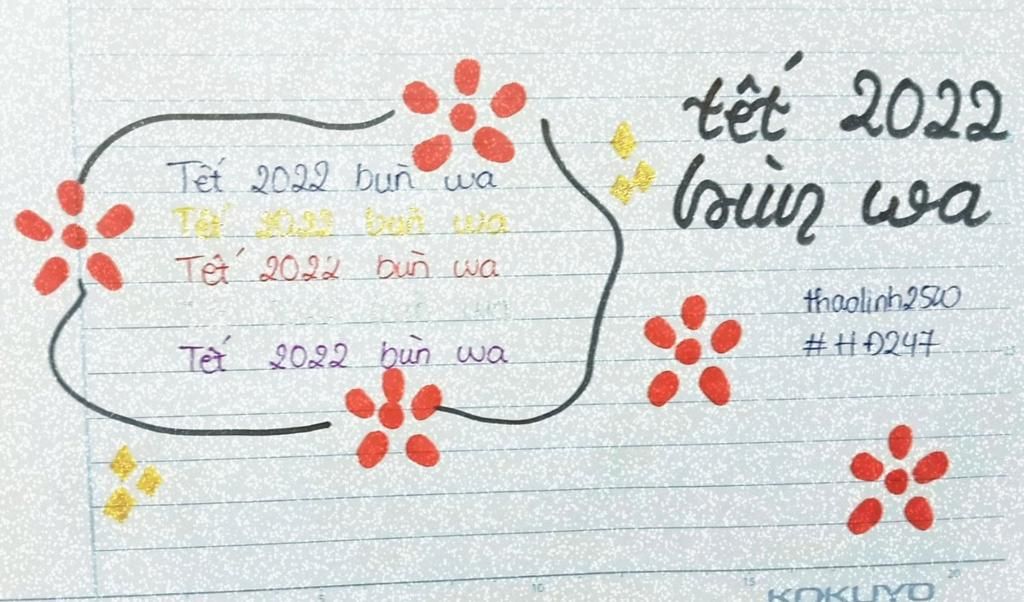 Tết 2022 buǹ wa
Tết 2022 buǹ wa
Tết 2022 buǹ wa
Tết 2022 buǹ wa
tết 2022
bùn wa
thaolinh2510
#HĐ247
5
10
15
20
KOKUYO